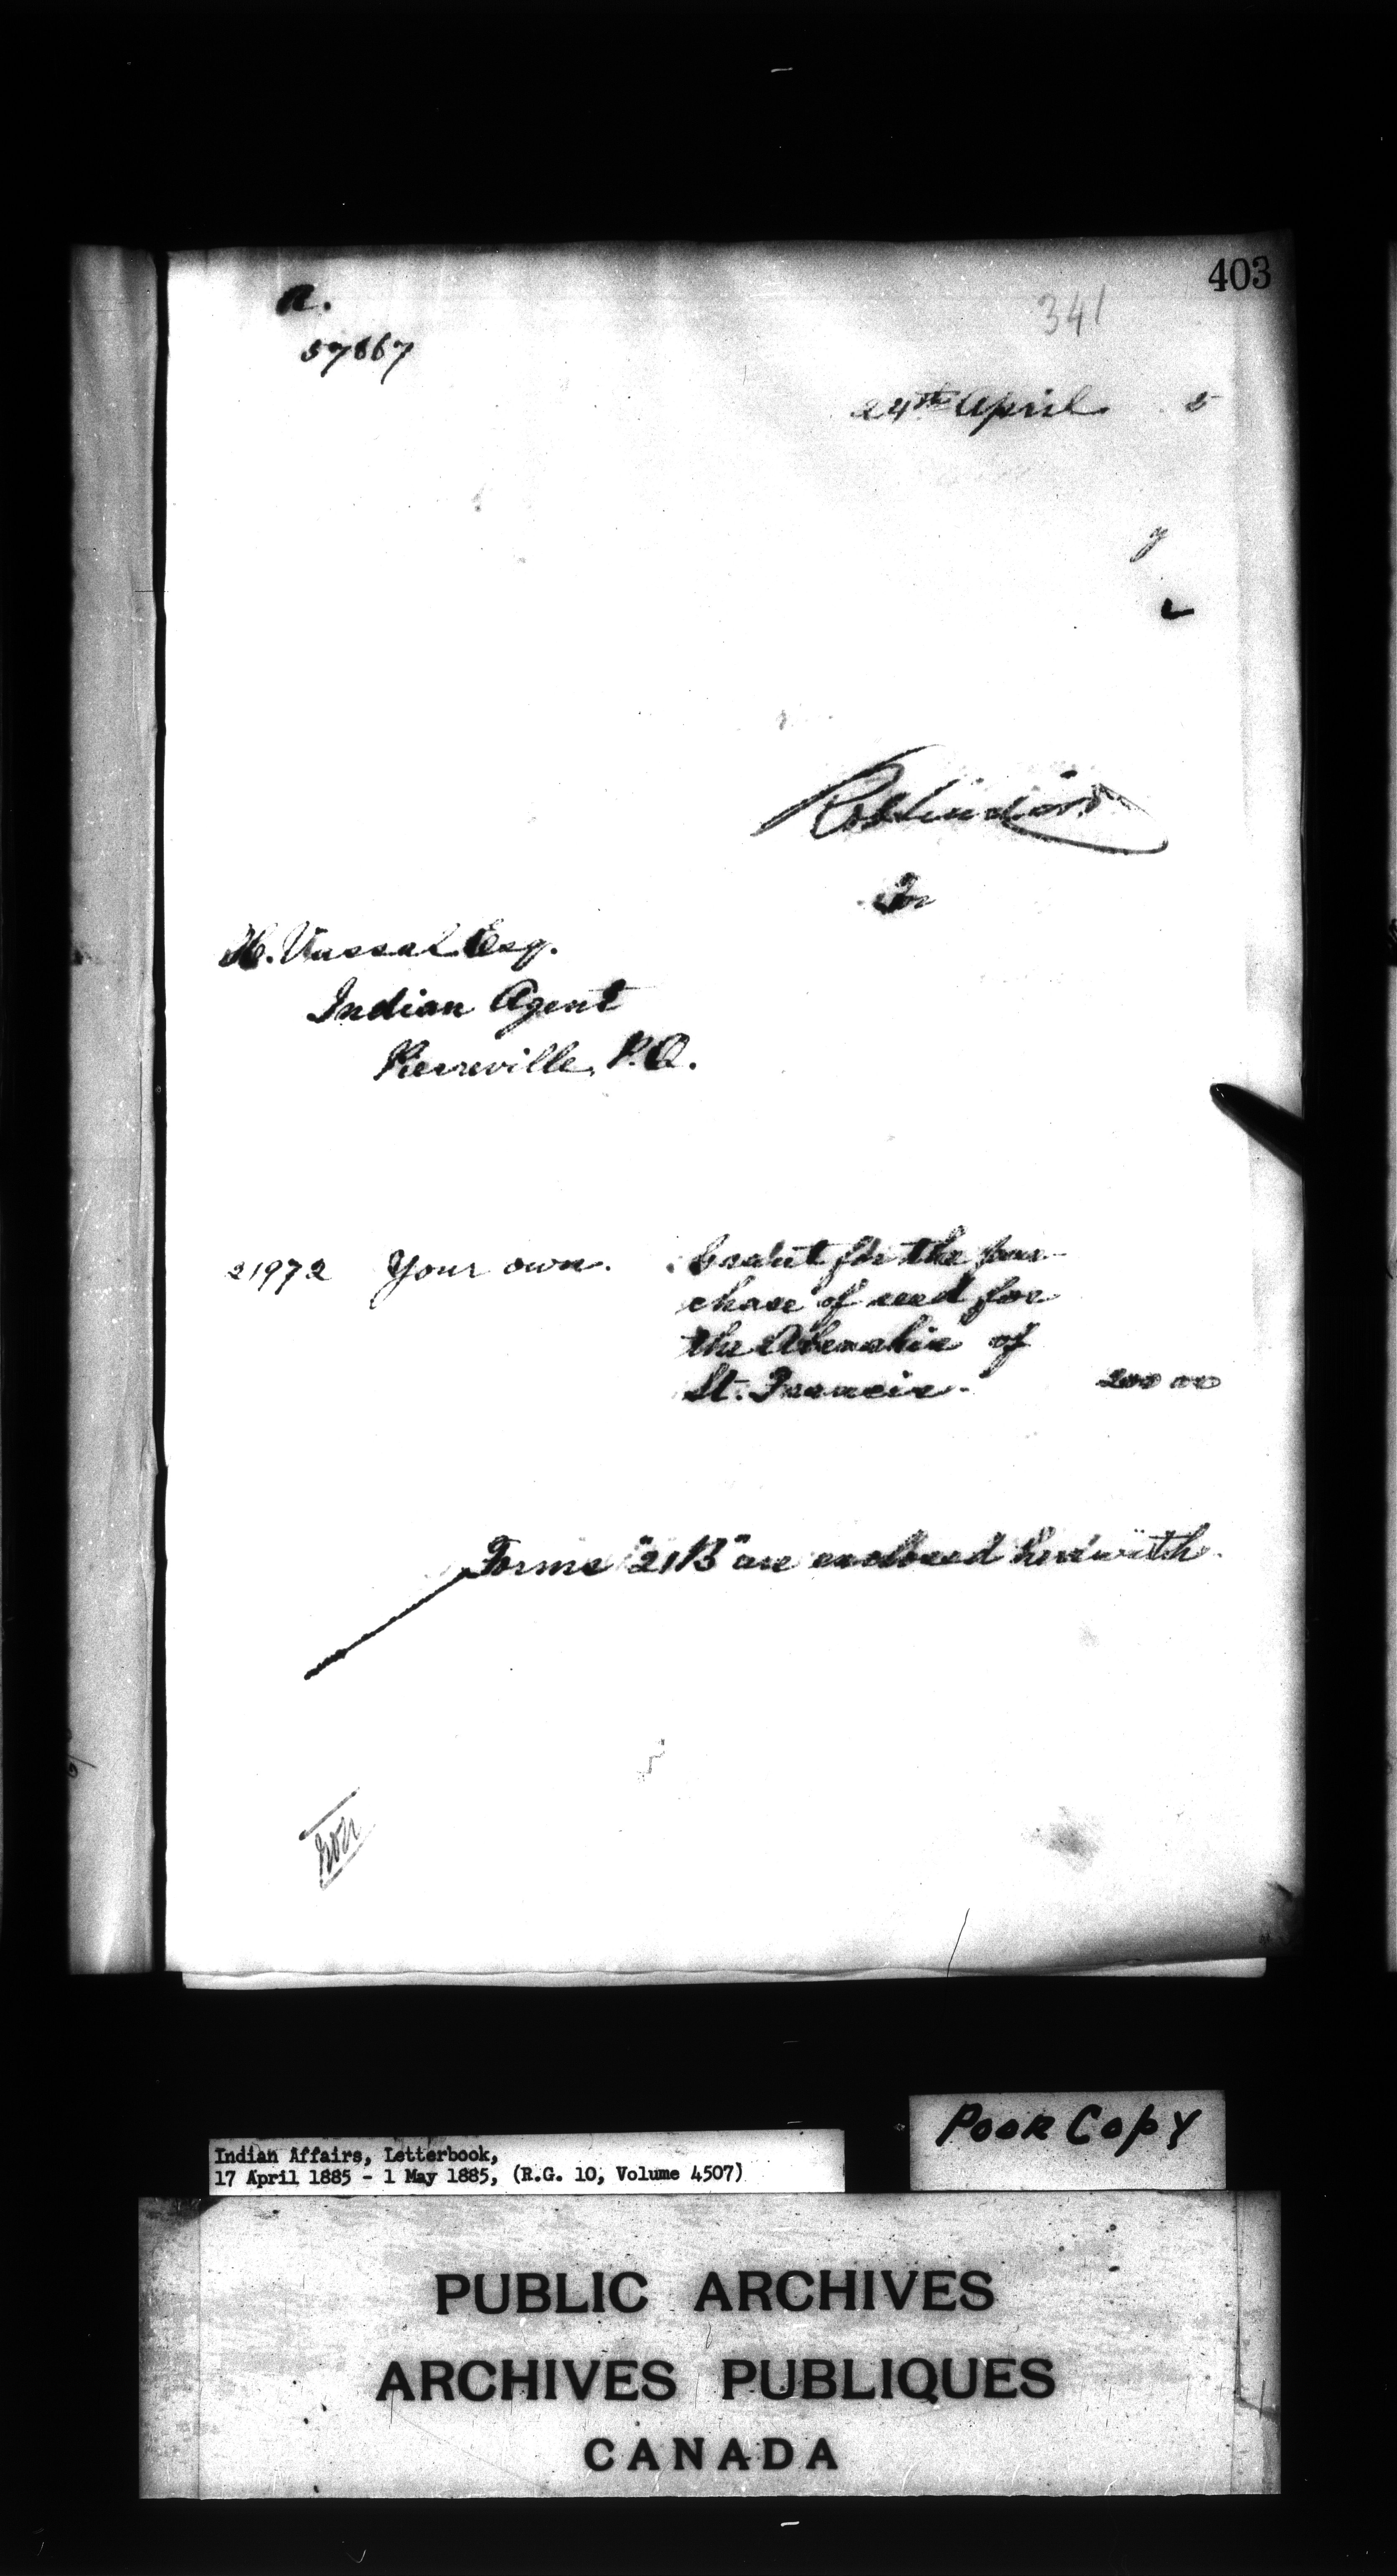 403
341
a.
57867
24th April 5
For
H. Vassal Esq.
Indian Agent
Pierreville, P.Q.
21972 Your own. Credit for the pur-
chase of seed for
the Abenakis of
St. Francis. 200 00
Forms "21B" are enclosed herewith
Poor Copy
Indian Affairs, Letterbook,
17 April 1885 - 1 May 1885, (R.G. 10, Volume 4507)
PUBLIC ARCHIVES
ARCHIVES PUBLIQUES
CANADA